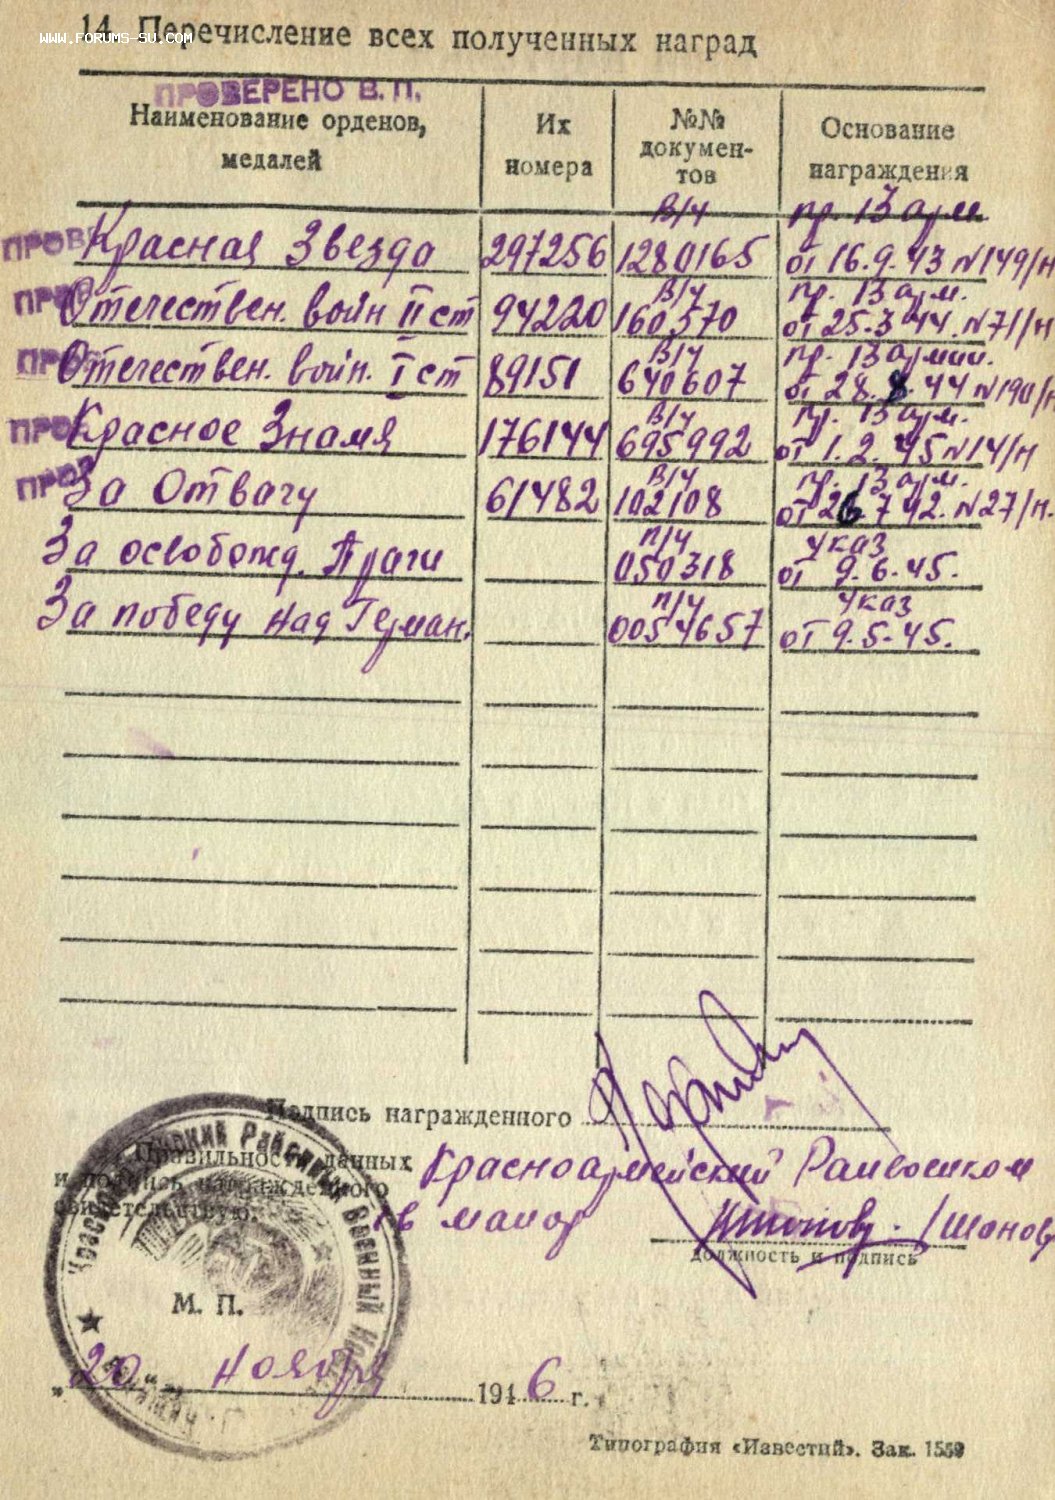 14. Перечисление всех полученных наград
WWW.FORUMS-SU.COM
ПРОВЕРЕНО В.П.
Наименование орденов, медалей
Их номера
№№ докумен-тов
Основание награждения
ПРОВ Красная Звезда 297256 В/ч 1280165 пр. 13 арм. от 16.9.43 №149/н
ПРОВ Отечествен. войн II ст 94220 В/ч 160570 пр. 13 арм. от 25.3 44. №71/н
ПРОВ Отечествен. войн. I ст 89151 В/ч 640607 пр. 13 армии. от 28.8.44 №190/н
ПРОВ Красное Знамя 176144 В/ч 695992 пр. 13 арм. от 1.2.45 №14/н
ПРОВ За Отвагу 61482 В/ч 102108 пр. 13 арм. от 26.7 42. №27/н.
За освобожд. Праги П/ч 050318 Указ от 9.6.45.
За победу над Герман. П/ч 0054657 Указ от 9.5.45.
Подпись награжденного
Правильность данных
и подпись награжденного
свидетельствую:
Красноармейский Райвоенком
майор /Шанов
должность и подпись
Районный Военный
М. П.
„20“ ноября 1946 г.
Типография «Известий». Зак. 1559